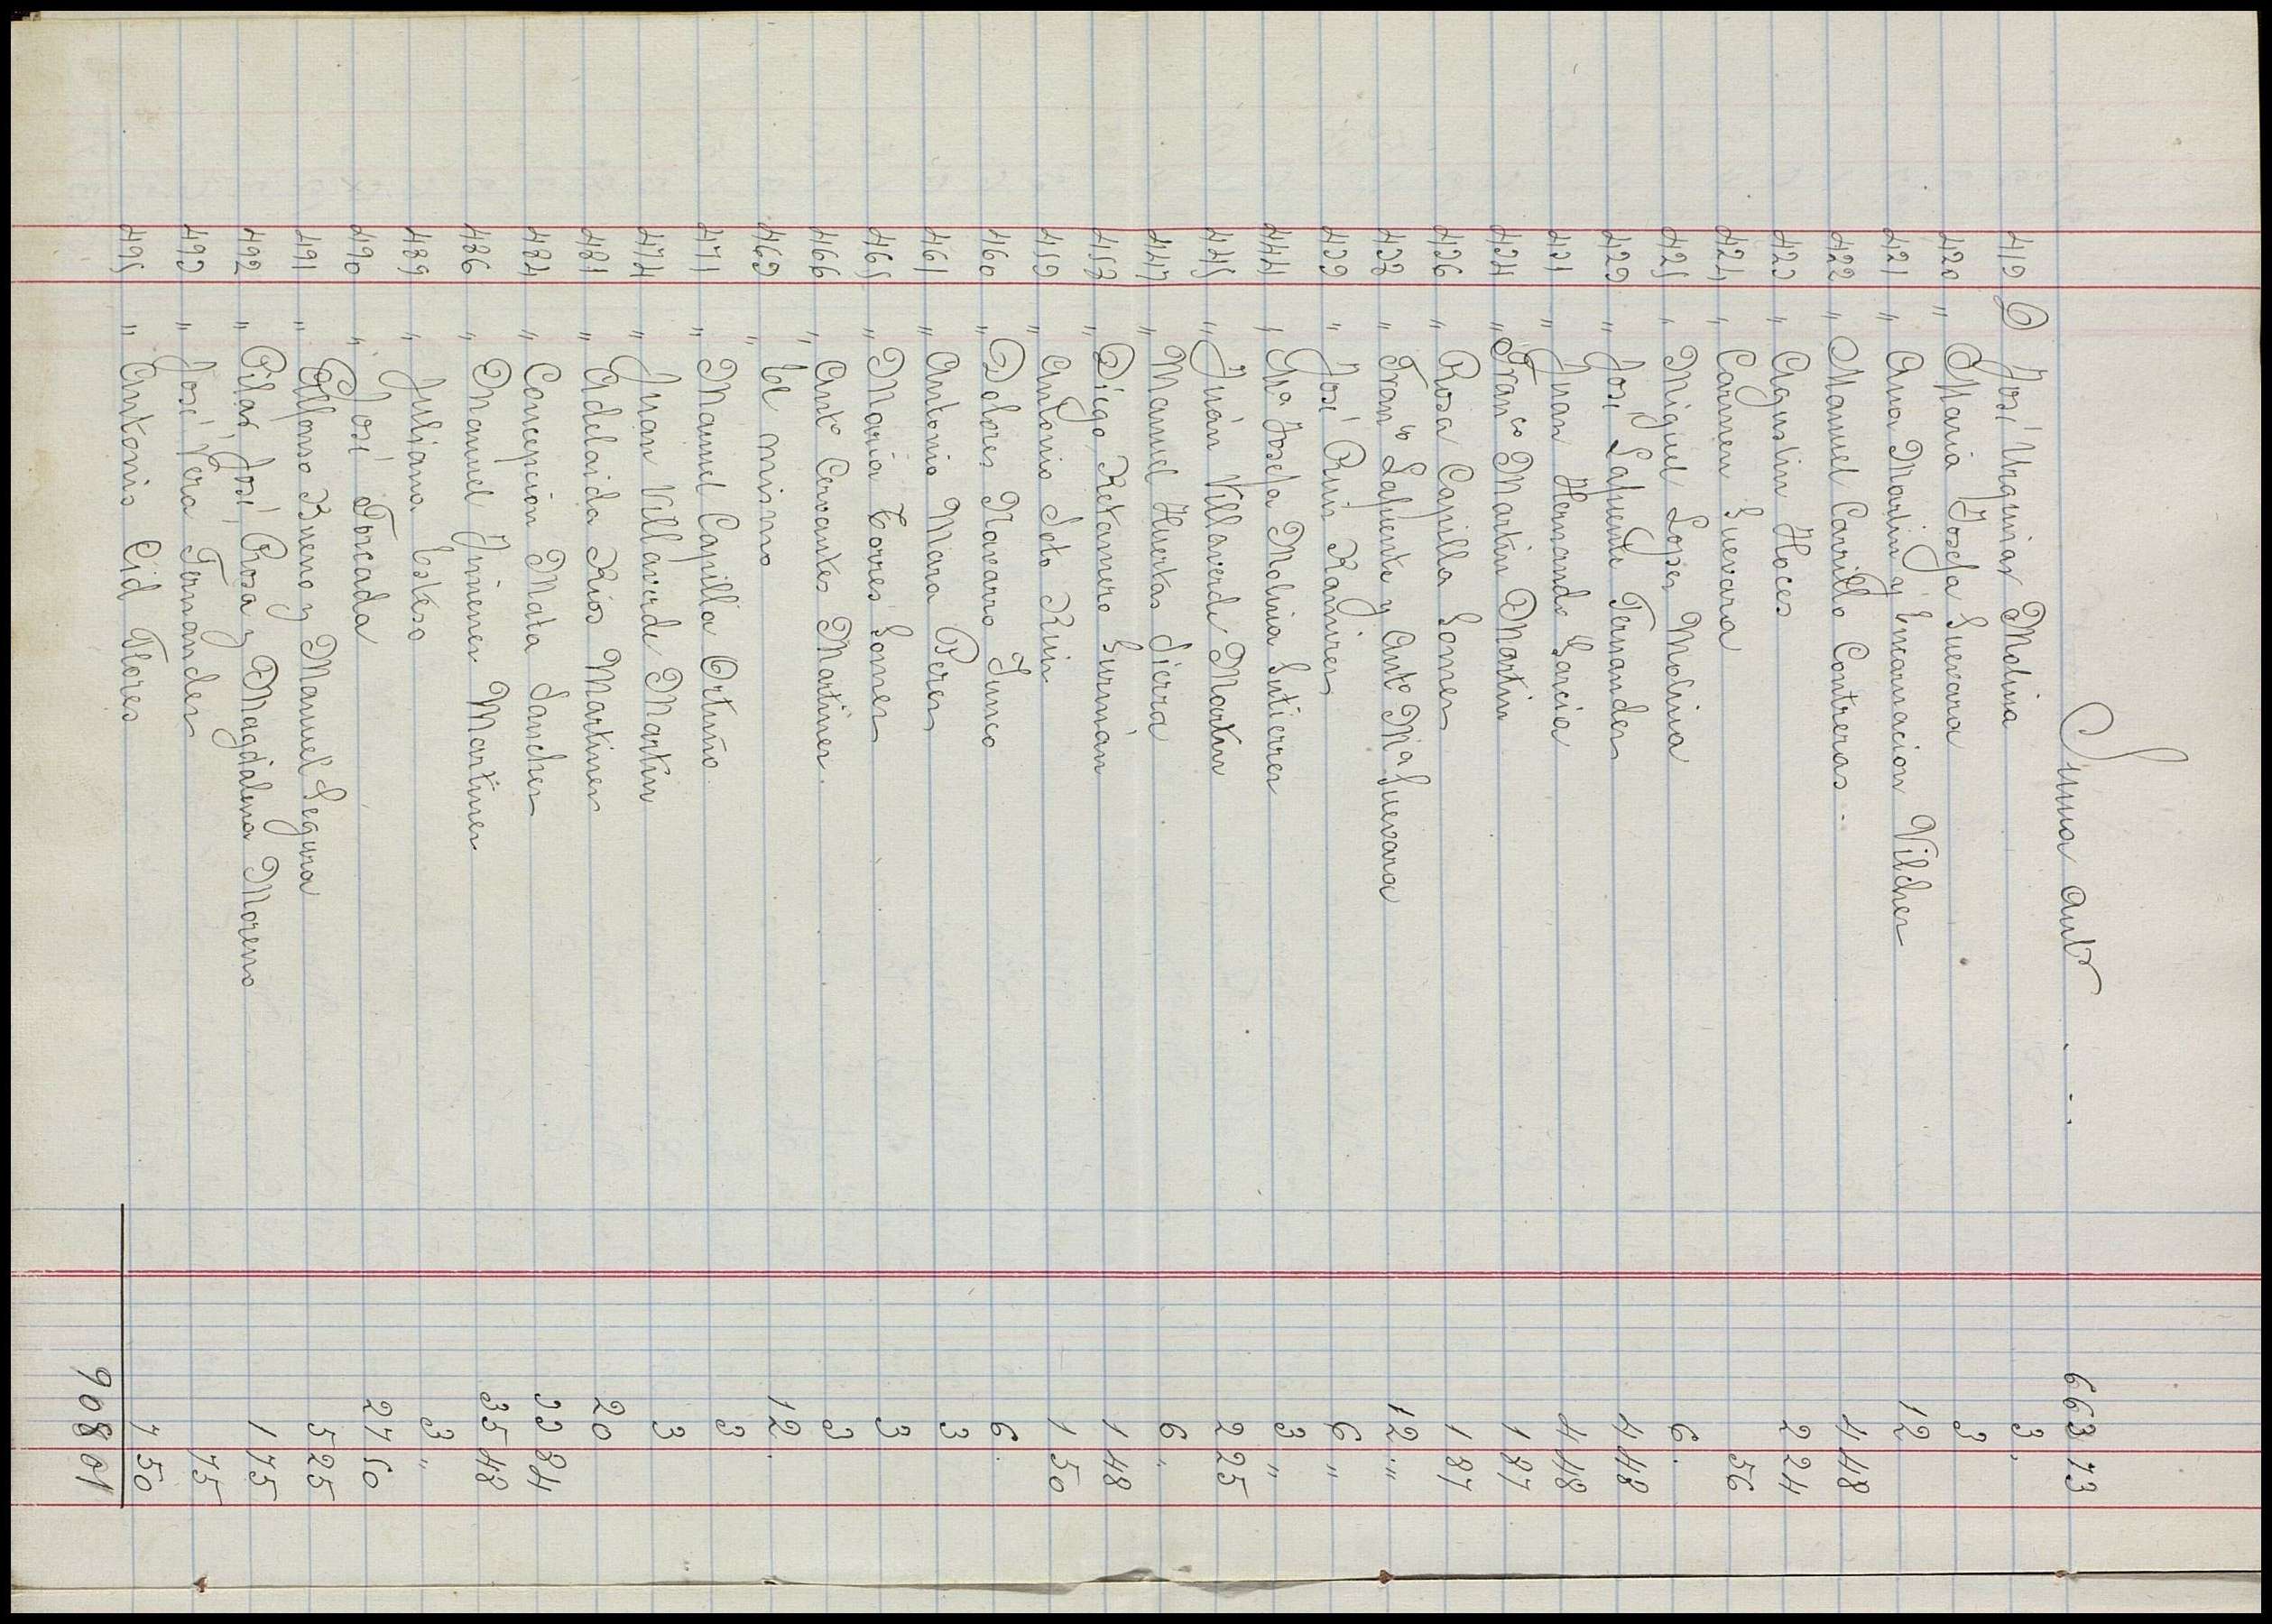 Suma antr . . . 663 73
419 D José Urquizar Molina 3 "
420 " Maria Josefa Guevara 3
421 " Ana Martin y Encarnacion Vilchez 12
422 " Manuel Carrillo Contreras 4 48
423 " Agustin Hoces 2 24
424 " Carmen Guevara 56
425 " Miguel Lopez Molina 6 "
429 " José Lafuente Fernandez 4 48
431 " Juan Hernande Garcia 4 48
434 " Franco Martin Martin 1 87
436 " Rosa Capilla Gomez 1 87
438 " Franco Lafuente y Anto Ma Guevara 12 "
439 " José Ruiz Ramirez 6 "
444 " Ma Josefa Molina Gutierrez 3 "
445 " Juán Villaverde Martin 2 25
447 " Manuel Huertas Sierra 6 "
458 " Diego Retamero Guzmán 1 48
459 " Antonio Soto Ruiz 1 50
460 " Dolores Navarro Junco 6
461 " Antonio Mara Perez 3
465 " Maria Torres Gomez 3
466 " Anto Cervantes Martinez. 3
469 " El mismo 12.
471 " Manuel Capilla Ortuño 3
474 " Juan Villaverde Martin 3
481 " Adelaida Rios Martinez 20
484 " Concepcion Mata Sanchez 33 84
486 " Manuel Jimenez Martinez 35 48
489 " Juliana Estéso 3 "
490 " José Torcada 27 50
491 " Alfonso Bueno y Manuel Segura 5 25
492 " Pilar, José, Rosa y Magdalena Moreno 1 75
493 " José Vera Fernandez 75
495 " Antonio Cid Flores 7 50
908 01